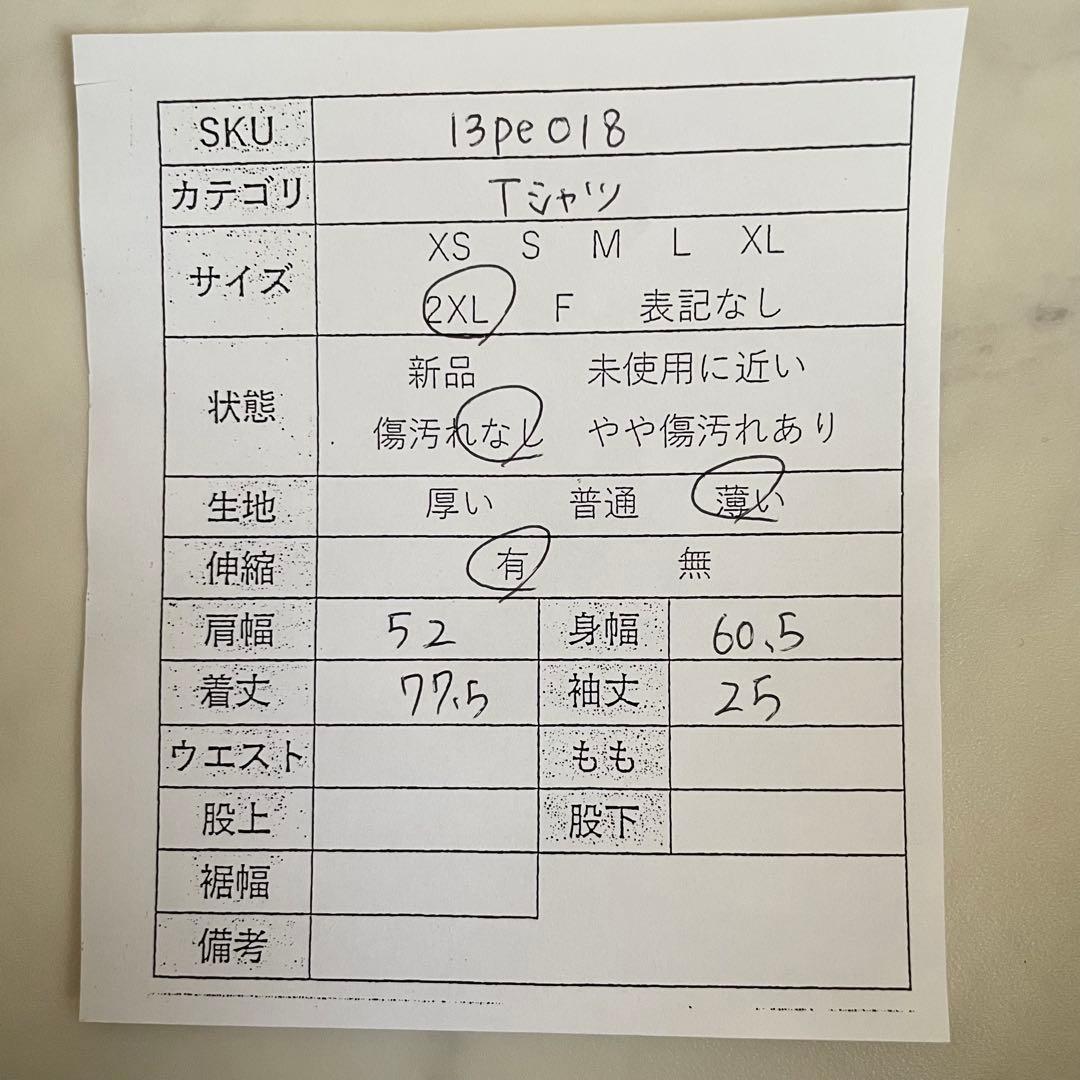 SKU 13pe018
カテゴリ Tシャツ
サイズ XS S M L XL
2XL F 表記なし
状態 新品 未使用に近い
傷汚れなし やや傷汚れあり
生地 厚い 普通 薄い
伸縮 有 無
肩幅 52 身幅 60.5
着丈 77.5 袖丈 25
ウエスト もも
股上 股下
裾幅
備考